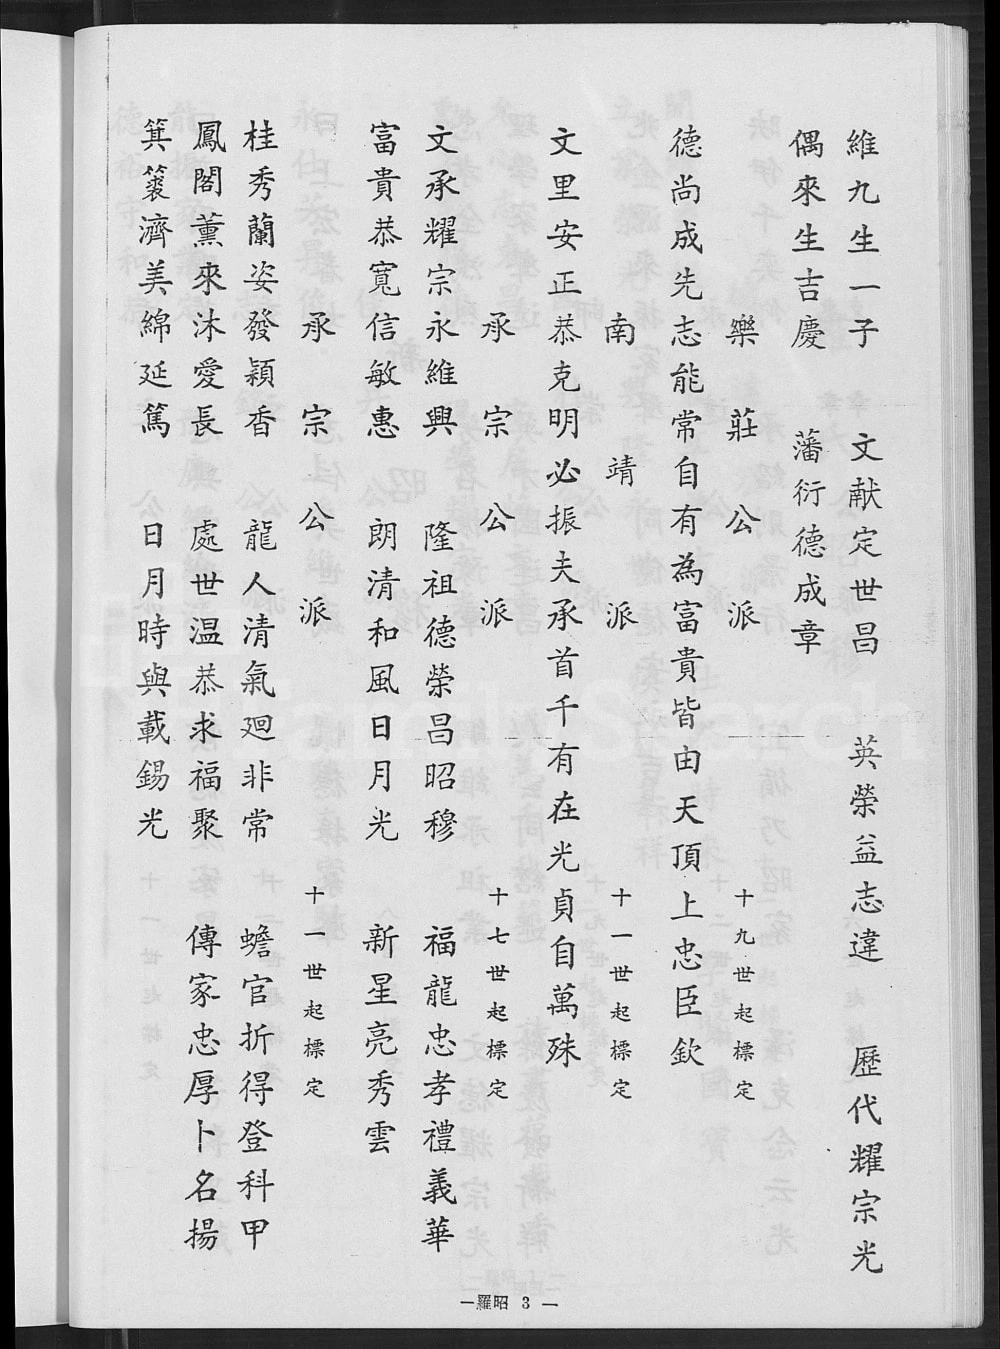 維九生一子　文献定世昌　英榮益志違　歷代耀宗光
偶來生吉慶　藩衍德成章
樂莊公派　十九世起標定
德尚成先志能常自有為富貴皆由天頂上忠臣欽
南靖公派　十一世起標定
文里安正恭克明必振夫承首千有在光貞自萬殊
承宗公派　十七世起標定
文承耀宗永維興　隆祖德榮昌昭穆　福龍忠孝禮義華
富貴恭寬信敏惠　朗清和風日月光　新星亮秀雲
承宗公派　十一世起標定
桂秀蘭姿發穎香　龍人清氣廻非常　蟾官折得登科甲
鳳閣薰來沐愛長　處世温恭求福聚　傳家忠厚卜名揚
箕裘濟美綿延篤　日月時與載錫光
—羅昭 3 —